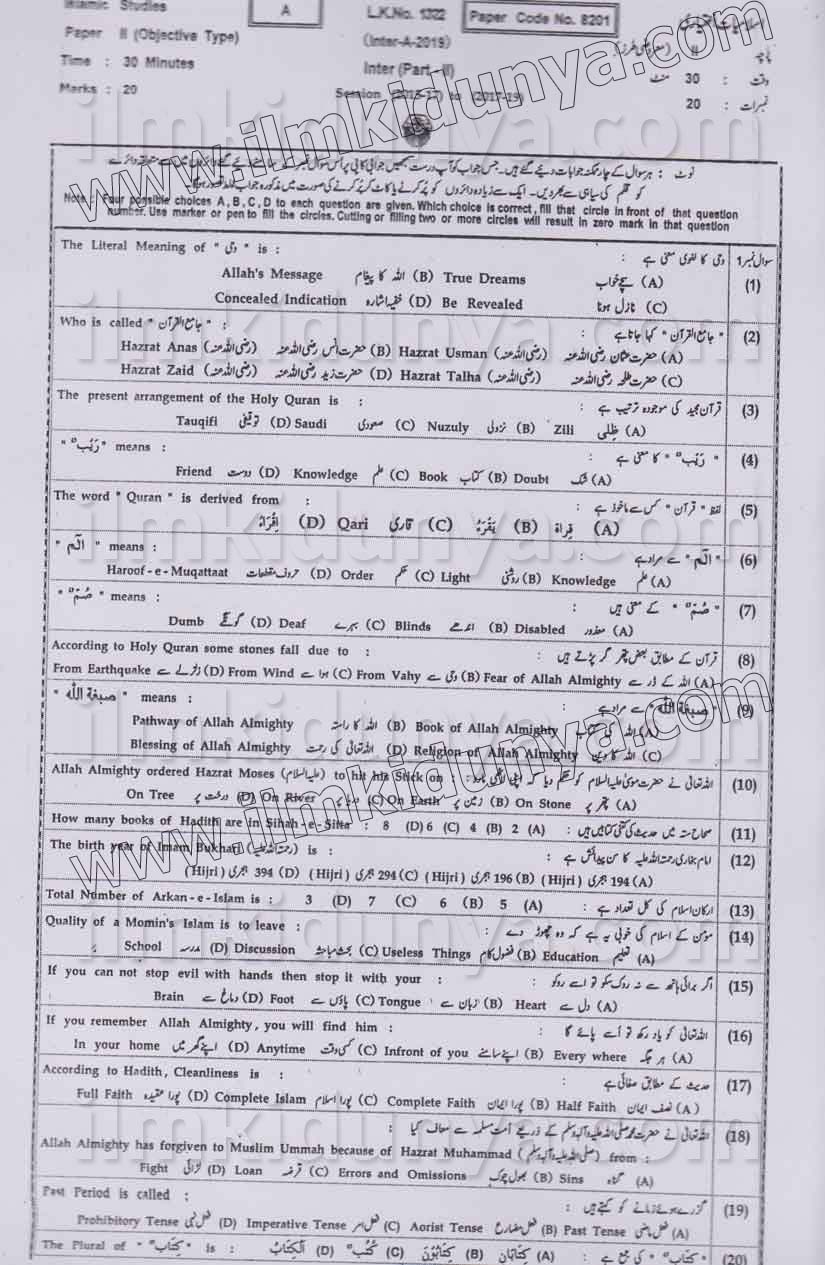 Islamic Studies A L.K.No. 1322 Paper Code No. 8201 اسلامیات اختیاری
Paper II (Objective Type) (Inter-A-2019) پرچہ II (معروضی طرز)
Time : 30 Minutes Inter (Part-II) وقت : 30 منٹ
Marks : 20 Session (2015-17) to (2017-19) نمبرات : 20
نوٹ : ہر سوال کے چار ممکنہ جوابات دیئے گئے ہیں۔ جس جواب کو آپ درست سمجھیں جوابی کاپی پر اُس سوال نمبر کے سامنے دیئے گئے دائروں میں سے متعلقہ دائرے
کو قلم کی سیاہی سے بھر دیں۔ ایک سے زیادہ دائروں کو پُر کرنے یا کاٹ کر پُر کرنے کی صورت میں مذکورہ جواب غلط تصور ہوگا۔
Note : Four possible choices A, B, C, D to each question are given. Which choice is correct, fill that circle in front of that question
number. Use marker or pen to fill the circles. Cutting or filling two or more circles will result in zero mark in that question
The Literal Meaning of " وحی " is : وحی کا لغوی معنی ہے : سوال نمبر 1
Allah's Message اللہ کا پیغام (B) True Dreams سچے خواب (A) (1)
Concealed Indication خفیہ اشارہ (D) Be Revealed نازل ہونا (C)
Who is called " جامع القرآن " : " جامع القرآن " کہا جاتا ہے : (2)
Hazrat Anas (رضی اللہ عنہ) حضرت انس رضی اللہ عنہ (B) Hazrat Usman (رضی اللہ عنہ) حضرت عثمان رضی اللہ عنہ (A)
Hazrat Zaid (رضی اللہ عنہ) حضرت زید رضی اللہ عنہ (D) Hazrat Talha (رضی اللہ عنہ) حضرت طلحہ رضی اللہ عنہ (C)
The present arrangement of the Holy Quran is : قرآن مجید کی موجودہ ترتیب ہے : (3)
Tauqifi توقیفی (D) Saudi سعودی (C) Nuzuly نزولی (B) Zili ظِلّی (A)
" رَیْبٌ " means : " رَیْبٌ " کا معنی ہے : (4)
Friend دوست (D) Knowledge علم (C) Book کتاب (B) Doubt شک (A)
The word " Quran " is derived from : لفظ " قرآن " کس سے ماخوذ ہے : (5)
اِقْرَاْ (D) Qari قاری (C) یَقْرَءُ (B) قراۃ (A)
" الٓمّٓ " means : " الٓمّٓ " سے مراد ہے : (6)
Haroof-e-Muqattaat حروف مقطعات (D) Order حکم (C) Light روشنی (B) Knowledge علم (A)
" صُمٌّ " means : " صُمٌّ " کے معنی ہیں : (7)
Dumb گونگے (D) Deaf بہرے (C) Blinds اندھے (B) Disabled معذور (A)
According to Holy Quran some stones fall due to : قرآن کے مطابق بعض پتھر گر پڑتے ہیں : (8)
From Earthquake زلزلے سے (D) From Wind ہوا سے (C) From Vahy وحی سے (B) Fear of Allah Almighty اللہ کے ڈر سے (A)
" صبغة الله " means : " صبغة الله " سے مراد ہے : (9)
Pathway of Allah Almighty اللہ کا راستہ (B) Book of Allah Almighty اللہ کی کتاب (A)
Blessing of Allah Almighty اللہ تعالٰی کی رحمت (D) Religion of Allah Almighty اللہ کا دین (C)
Allah Almighty ordered Hazrat Moses (علیہ السلام) to hit his Stick on : اللہ تعالٰی نے حضرت موسیٰ علیہ السلام کو حکم دیا کہ اپنی لاٹھی مارو : (10)
On Tree درخت پر (D) On River دریا پر (C) On Earth زمین پر (B) On Stone پتھر پر (A)
How many books of Hadith are in Sihah-e-Sitta : 8 (D) 6 (C) 4 (B) 2 (A) صحاح ستہ میں حدیث کی کتنی کتابیں ہیں : (11)
The birth year of Imam Bukhari (رحمتہ اللہ علیہ) is : امام بخاری رحمتہ اللہ علیہ کا سن پیدائش ہے : (12)
(Hijri) ہجری 394 (D) (Hijri) ہجری 294 (C) (Hijri) ہجری 196 (B) (Hijri) ہجری 194 (A)
Total Number of Arkan-e-Islam is : 3 (D) 7 (C) 6 (B) 5 (A) ارکان اسلام کی کل تعداد ہے : (13)
Quality of a Momin's Islam is to leave : مومن کے اسلام کی خوبی یہ ہے کہ وہ چھوڑ دے : (14)
School مدرسہ (D) Discussion بحث مباحثہ (C) Useless Things فضول کام (B) Education تعلیم (A)
If you can not stop evil with hands then stop it with your : اگر برائی ہاتھ سے نہ روک سکو تو اسے روکو : (15)
Brain دماغ سے (D) Foot پاؤں سے (C) Tongue زبان سے (B) Heart دل سے (A)
If you remember Allah Almighty, you will find him : اللہ تعالٰی کو یاد رکھ تو اُسے پائے گا : (16)
In your home اپنے گھر میں (D) Anytime کسی وقت (C) Infront of you اپنے سامنے (B) Every where ہر جگہ (A)
According to Hadith, Cleanliness is : حدیث کے مطابق صفائی ہے : (17)
Full Faith پورا عقیدہ (D) Complete Islam پورا اسلام (C) Complete Faith پورا ایمان (B) Half Faith نصف ایمان (A)
اللہ تعالٰی نے حضرت محمد صلی اللہ علیہ وآلہ وسلم کے ذریعے اُمت مسلمہ سے معاف کیا : (18)
Allah Almighty has forgiven to Muslim Ummah because of Hazrat Muhammad (صلی اللہ علیہ وآلہ وسلم) from :
Fight لڑائی (D) Loan قرضہ (C) Errors and Omissions بھول چوک (B) Sins گناہ (A)
Past Period is called : گزرے ہوئے زمانے کو کہتے ہیں : (19)
Prohibitory Tense فعل نہی (D) Imperative Tense فعل امر (C) Aorist Tense فعل مضارع (B) Past Tense فعل ماضی (A)
The Plural of " کِتَابٌ " is : اَلْکِتَابُ (D) کُتُبٌ (C) کِتَابُوْنَ (B) کِتَابَانِ (A) " کِتَابٌ " کی جمع ہے : (20)
www.ilmkidunya.com
www.ilmkidunya.com
ilmkidunya.com
ilmkidunya.com
ilmkidunya.com
ilmkidunya.com
ilmkidunya.com
ilmkidunya.com